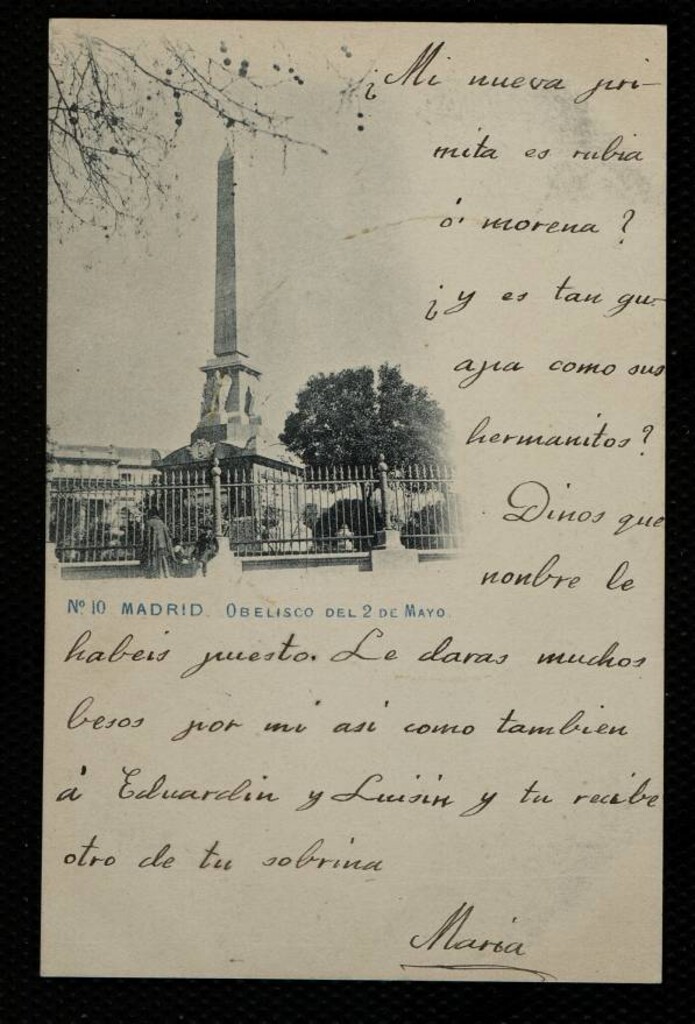 ¿Mi nueva pri-
mita es rubia
ó morena?
¿y es tan gu-
apa como sus
hermanitos?
Dinos que
nonbre le
Nº 10 MADRID. OBELISCO DEL 2 DE MAYO.
habeis puesto. Le daras muchos
besos por mi asi como tambien
á Eduardin y Luisin y tu recibe
otro de tu sobrina
Maria